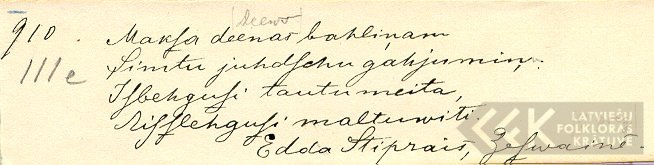 |deews|
910. Maksa deenas bahliņam
111e Simtu juhdschu gahjumiņ:
Isbehgusi tautu meita,
Aisslehgusi maltuwiti.
Edda Stiprais, Zeswainē.
LATVIEŠU
FOLKLORAS
KRĀTUVE